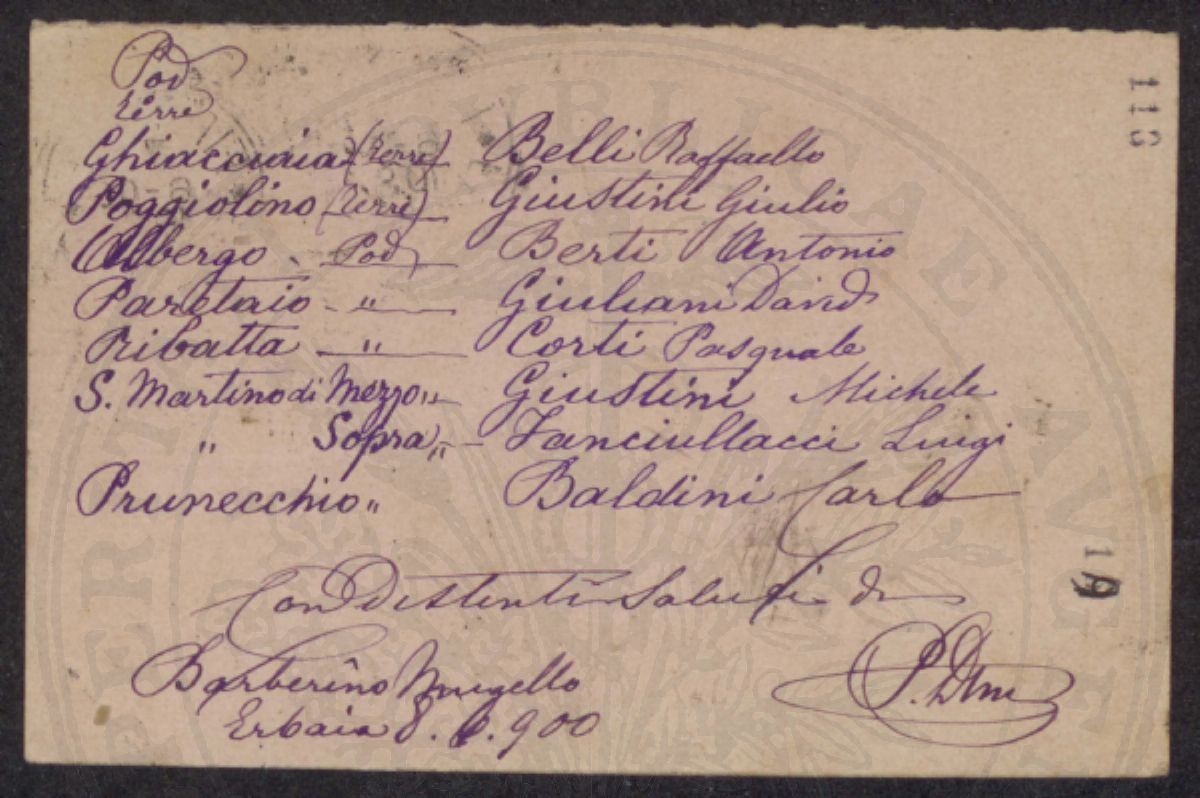 Pod
terre
Ghiacciaia (terre) Belli Raffaello
Poggiolino (terre) Giustini Giulio
Albergo - Pod Berti Antonio
Paretaio - " Giuliani David
Ribatta - " Corti Pasquale
S. Martino di Mezzo " - Giustini Michele
" Sopra " - Fanciullacci Luigi
Prunecchio " Baldini Carlo
Con Distinti Saluti di
Barberino Mugello P. Dini
Erbaia 8. 6. 900
113
19